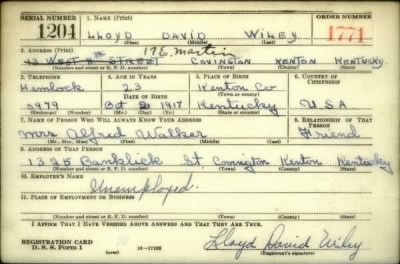 SERIAL NUMBER 1. NAME (Print) ORDER NUMBER
1204 LLOYD DAVID WILEY 1771
(First) (Middle) (Last)
2. ADDRESS (Print) 176. Martin
43 WEST 8 STREET COVINGTON KENTON KENTUCKY
(Number and street or R. F. D. number) (Town) (County) (State)
3. TELEPHONE 4. AGE IN YEARS 5. PLACE OF BIRTH 6. COUNTRY OF CITIZENSHIP
Hemlock 23 Kenton Co
DATE OF BIRTH
3979 Oct 2 1917 Kentucky U S A
(Exchange) (Number) (Mo.) (Day) (Yr.) (State or country)
7. NAME OF PERSON WHO WILL ALWAYS KNOW YOUR ADDRESS 8. RELATIONSHIP OF THAT PERSON
Mrs Alfred Walker Friend
(Mr., Mrs., Miss) (First) (Middle) (Last)
9. ADDRESS OF THAT PERSON
1325 Banklick St. Covington Kenton Kentucky
(Number and street or R. F. D. number) (Town) (County) (State)
10. EMPLOYER'S NAME
Unemployed.
11. PLACE OF EMPLOYMENT OR BUSINESS
(Number and street or R. F. D. number) (Town) (County) (State)
I AFFIRM THAT I HAVE VERIFIED ABOVE ANSWERS AND THAT THEY ARE TRUE.
REGISTRATION CARD
D. S. S. Form 1 (over) 16-17105 Lloyd David Wiley
(Registrant's signature)